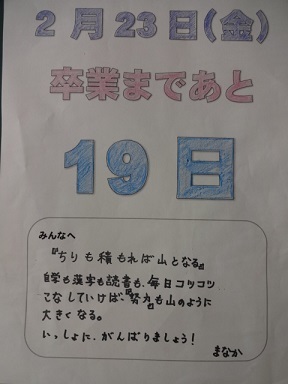 2月23日(金)
卒業まであと
19日
みんなへ
『ちりも積もれば山となる』
自学も漢字も読書も、毎日コツコツ
こなしていけば、『努力』も山のように
大きくなる。
いっしょに、がんばりましょう!
まなか